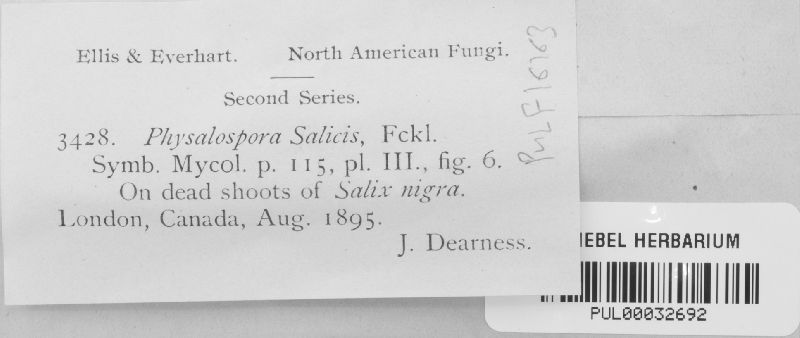 Ellis & Everhart. North American Fungi.
Second Series.
3428. Physalospora Salicis, Fckl.
Symb. Mycol. p. 115, pl. III., fig. 6.
On dead shoots of Salix nigra.
London, Canada, Aug. 1895.
J. Dearness.
PUL F16763
IEBEL HERBARIUM
PUL00032692